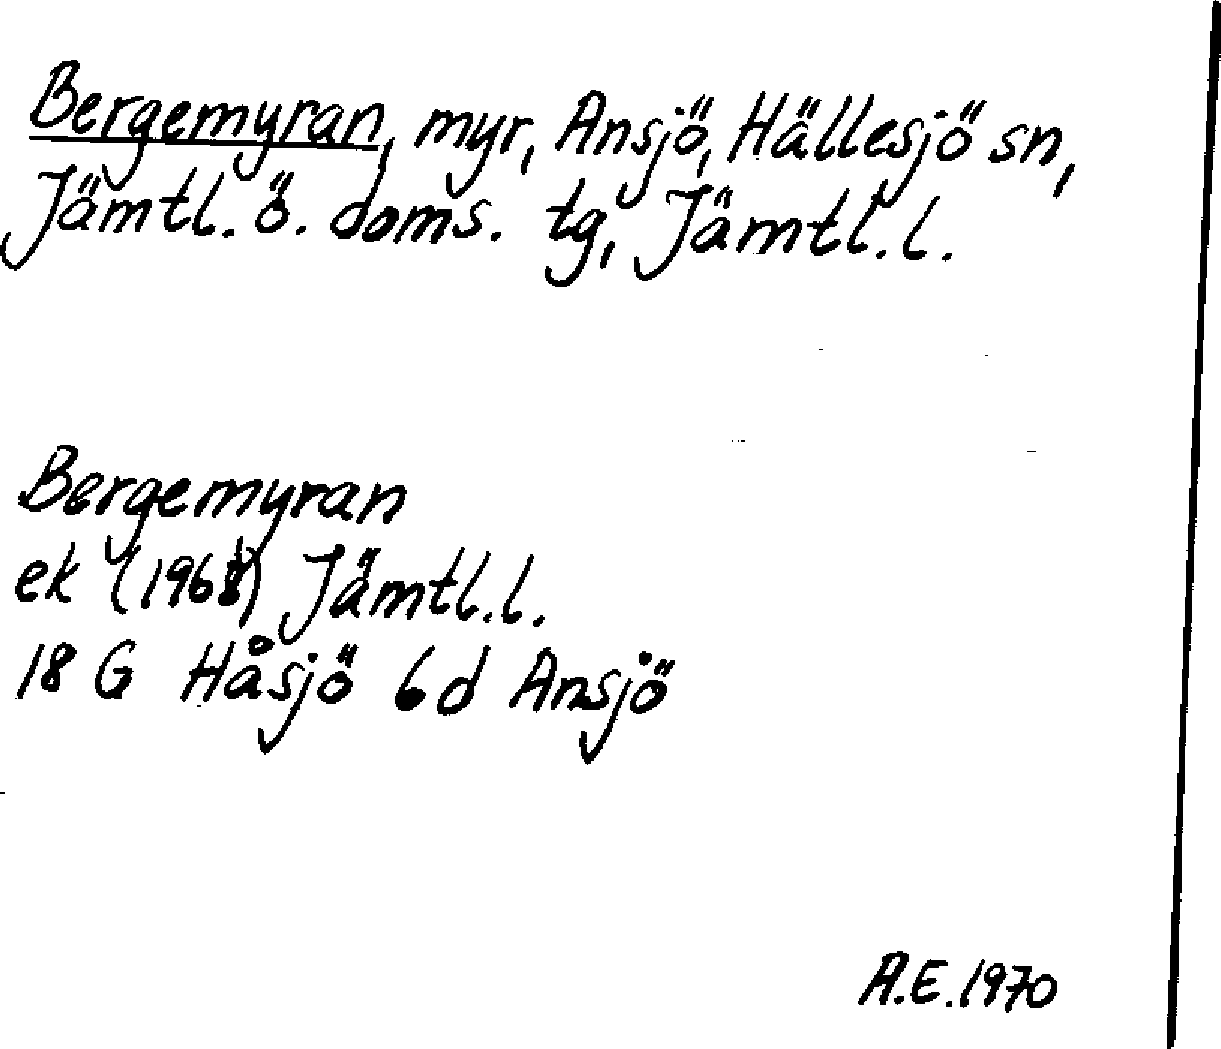 Bergemyran, myr, Ansjö, Hällesjö sn,
Jämtl. ö. doms. tg, Jämtl. l.
Bergemyran
ek Jämtl. l.
18 G Håsjö 6d Ansjö
A.E. 1970